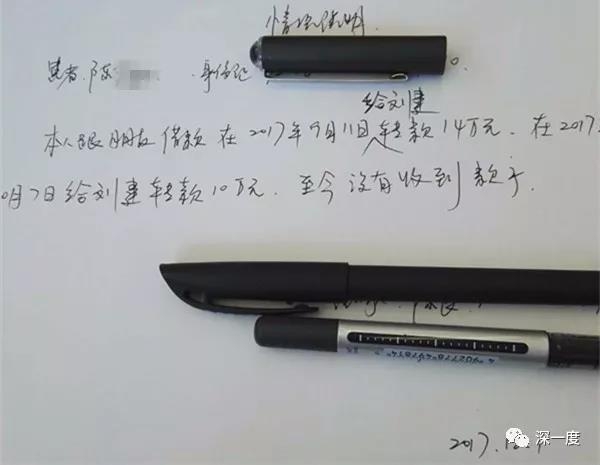 情况说明
患者.陈 .身份证
给刘建
本人跟朋友借款 在2017年9月11日转款14万元.在2017.
0月7日给刘建转款10万元.至今没有收到款子.
2017.
深一度